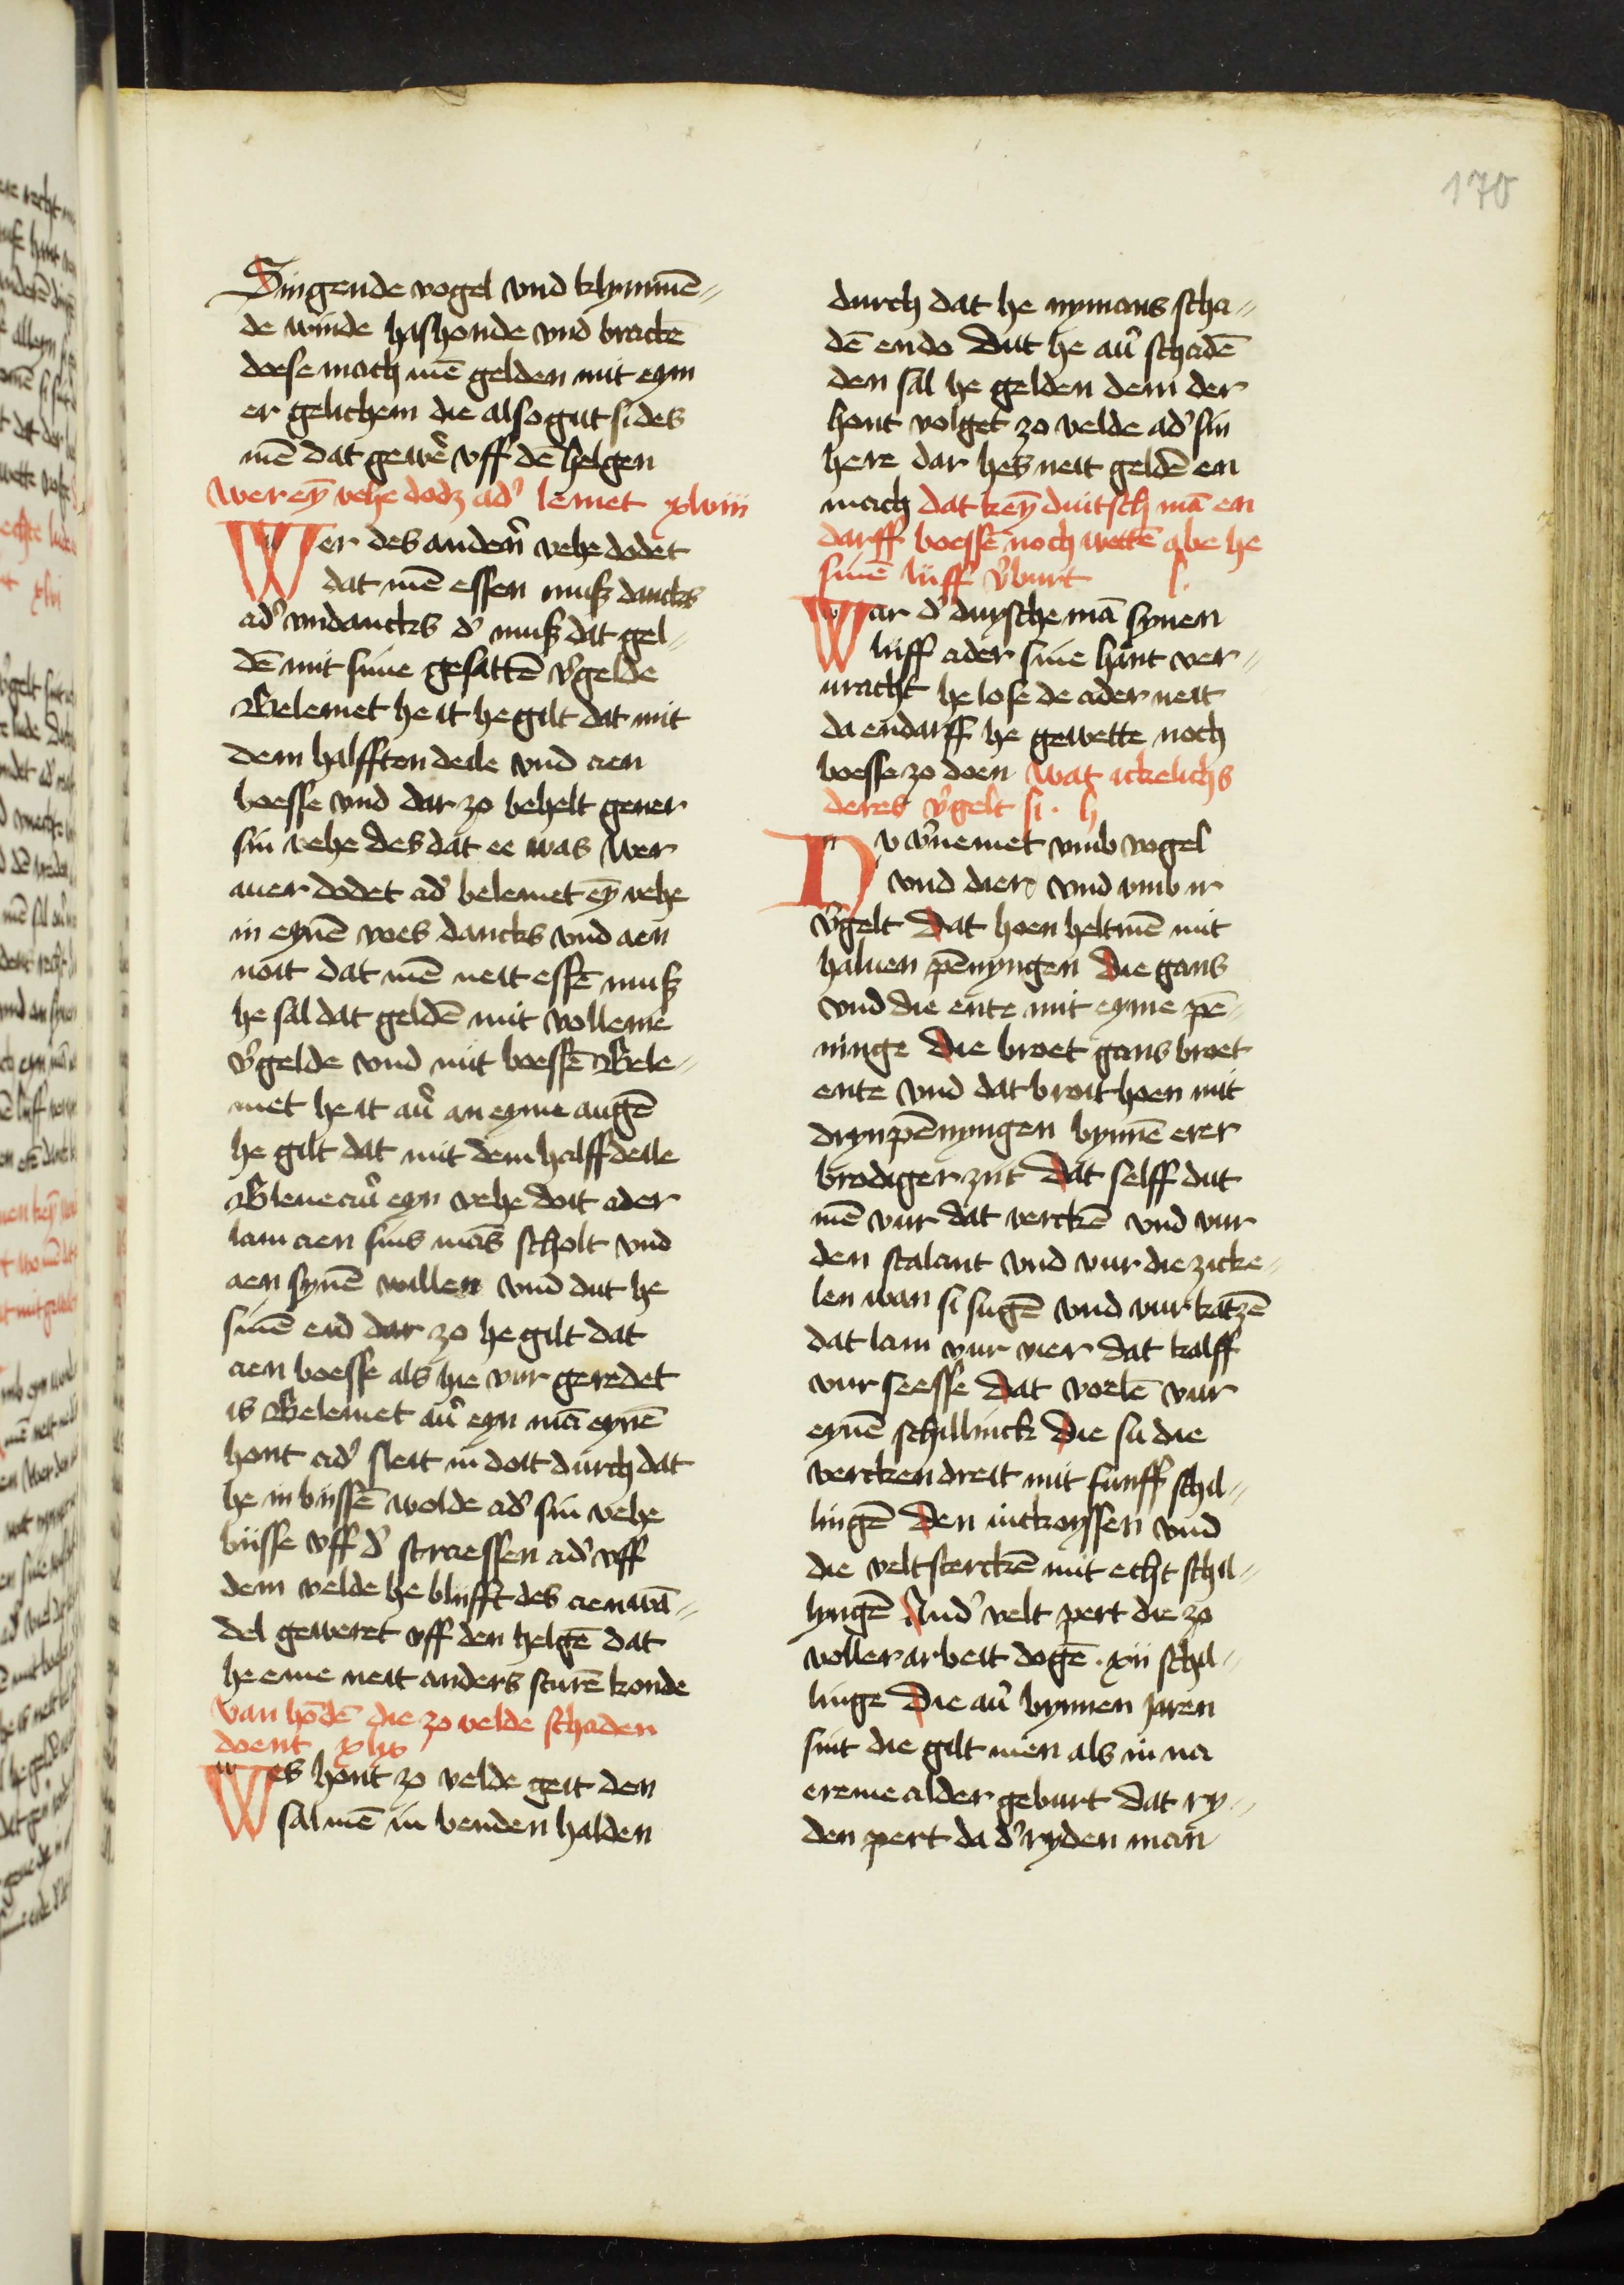 170
Singende vogel vnd klymmē-
de winde hashonde vnd brackē
doese mach mē gelden mit eym
er gelichem die also gut si des
mē dat gewē̓ vff dē helgen
Wer eȳ vehe dodz ad̓ lemet xlviii
Wer des andern̄ vehe dodet
dat mē essen muß dancks
ad̓ vndancks d̓ muß dat gel-
dē mit sime gesattē v̓gelde
Belemet he it he gilt dat mit
dem halfften deile vnd aen
boesse vnd dar zo behelt gener
sin vehe des dat ee was Wer
auer dodet ad̓ belemet eȳ vehe
in eynē voes dancks vnd aen
noit dat mē neit essē muß
he sal dat geldē mit volleme
v̓gelde vnd mit boessē Bele-
met he it au̓ an eyme augē
he gilt dat mit dem halff deile
Bleue au̓ eyn vehe doit ader
lam aen sins mās scholt vnd
aen synē willen vnd dut he
sinē eid dar zo he gilt dat
aen boesse als hie vur geredet
is Belemet au̓ eyn mā eynē
hont ad̓ sleit in doit durch dat
he in bissē wolde ad̓ sin vehe
bisse vff d̓ straessen ad̓ vff
dem velde he blijfft des aen wā-
del geweret vff den helgē dat
he eme neit anders sturē konde
Van hōdē die zo velde schaden
doent xlix
Wes hont zo velde geit den
sal mē in benden halden
durch dat he nymans scha-
dē en do Dut he au̓ schadē
den sal he gelden dem der
hont volget zo velde ad̓ sin
here dar hes neit geldē en
mach dat keȳ duitsch mā en
darff boessē noch wettē abe he
sinē lijff v̓burt l.
War d̓ duysche mā synen
lijff ader sine hant ver-
uracht he lose de ader neit
da endarff he gewette noch
boesse zo doen Wat ickelichs
deres v̓gelt si. lj
Nu v̓nemet vmb vogel
vnd dier vnd vmb ir
v̓gelt Dat hoen helt mē mit
haluen pēnyngen Die gans
vnd die ente mit eyme pē-
ninge Die broet gans broet
ente vnd dat broit hoen mit
dryn pēnyngen bynnē erer
brodiger zijt Dat selff dut
mē vur dat verckē vnd vur
den stalant vnd vur die zicke-
len wan si sugē vnd vur katzē
dat lam vur vier dat kalff
vur seesse Dat voelē vur
eynē schillinck Die su die
vercken dreit mit funff schil-
lingē Den intkoyssen vnd
die velt sterckē mit echt schil-
lyngē And̓ velt pert die zo
voller arbeit dogē. xii schil-
linge Die au̓ bynnen Jaren
sint die gilt men als in na
ereme alder geburt Dat ry-
den pert da d̓ ryden man